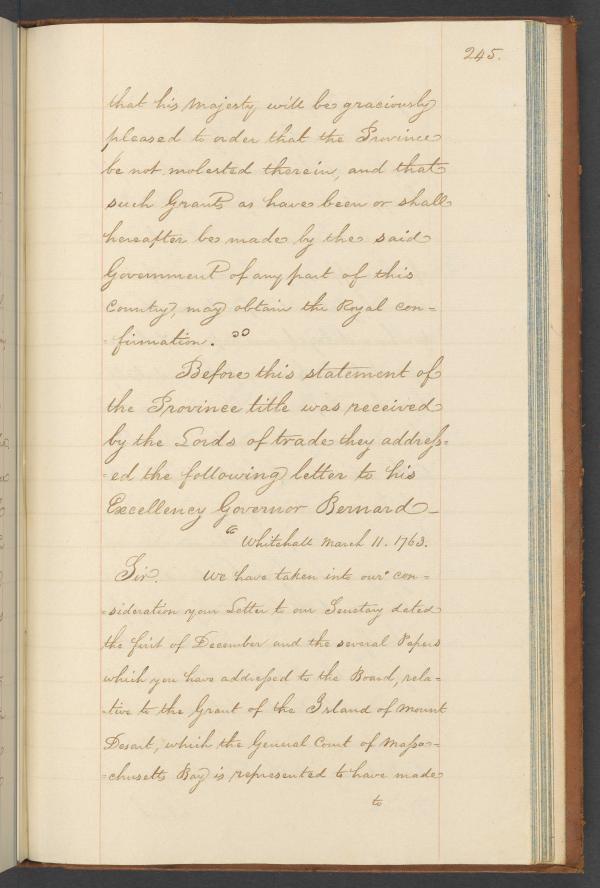 245.
that his Majesty will be graciously
pleased to order that the Province
be not molested therein, and that
such Grants as have been or shall
hereafter be made by the said
Government of any part of this
Country, may obtain the Royal con=
=firmation. "
Before this statement of
the Province title was received
by the Lords of trade they address=
=ed the following letter to his
Excellency Governor Bernard—
"Whitehall March 11. 1763.
Sir. We have taken into our con=
=sideration your Letter to our Secretary dated
the first of December and the several Papers
which you have addressed to the Board, rela=
=tive to the Grant of the Island of Mount
Desart, which the General Court of Massa=
=chusetts Bay is represented to have made
to